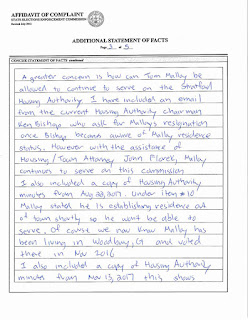 AFFIDAVIT OF COMPLAINT
STATE ELECTIONS ENFORCEMENT COMMISSION
ADDITIONAL STATEMENT OF FACTS
Page 3 of 5
CONCISE STATEMENT OF FACTS continued
A greater concern is how can Tom Malloy be
allowed to continue to serve on the Stratford
Housing Authority. I have included an email
from the current Housing Authority chairman
Ken Bishop who ask for Malloy's resignation
once Bishop became aware of Malloy residence
status. However with the assistance of
Housing/Town Attorney John Florek, Malloy
continues to serve on this commission
I also included a copy of Housing Authority
minutes from Aug 22, 2017. Under item #10
Malloy stated he is establishing residence out
of town shortly so he won't be able to
serve. Of course we now know Malloy has
been living in Woodbury, Ct and voted
there in Nov 2016
I also included a copy of Housing Authority
minutes from Nov 15, 2017 this shows